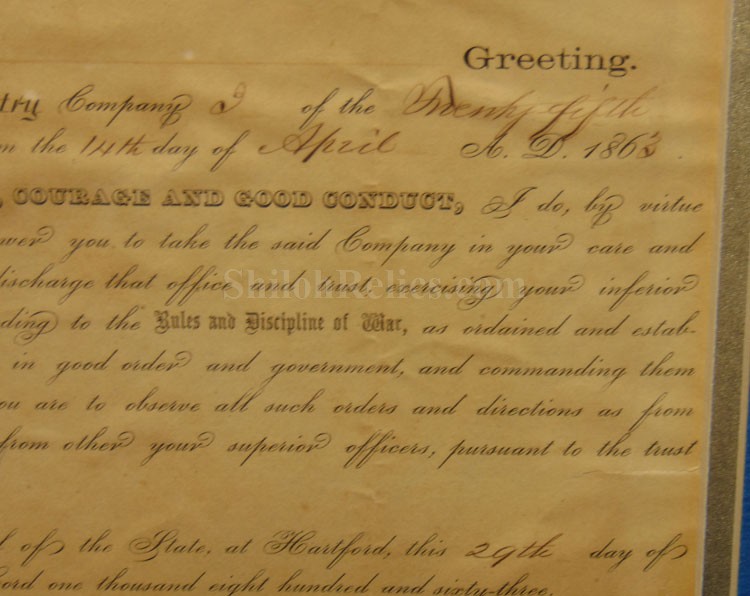 Greeting.
try Company I of the Twenty fifth
the 14th day of April A. D. 1863.
, COURAGE AND GOOD CONDUCT, I do, by virtue
wer you to take the said Company in your care and
ischarge that office and trust, exercising your inferior
ShilohRelics.com
ding to the Rules and Discipline of War, as ordained and estab-
in good order and government, and commanding them
ou are to observe all such orders and directions as from
from other your superior officers, pursuant to the trust
l of the State, at Hartford, this 29th day of
ord one thousand eight hundred and sixty-three.